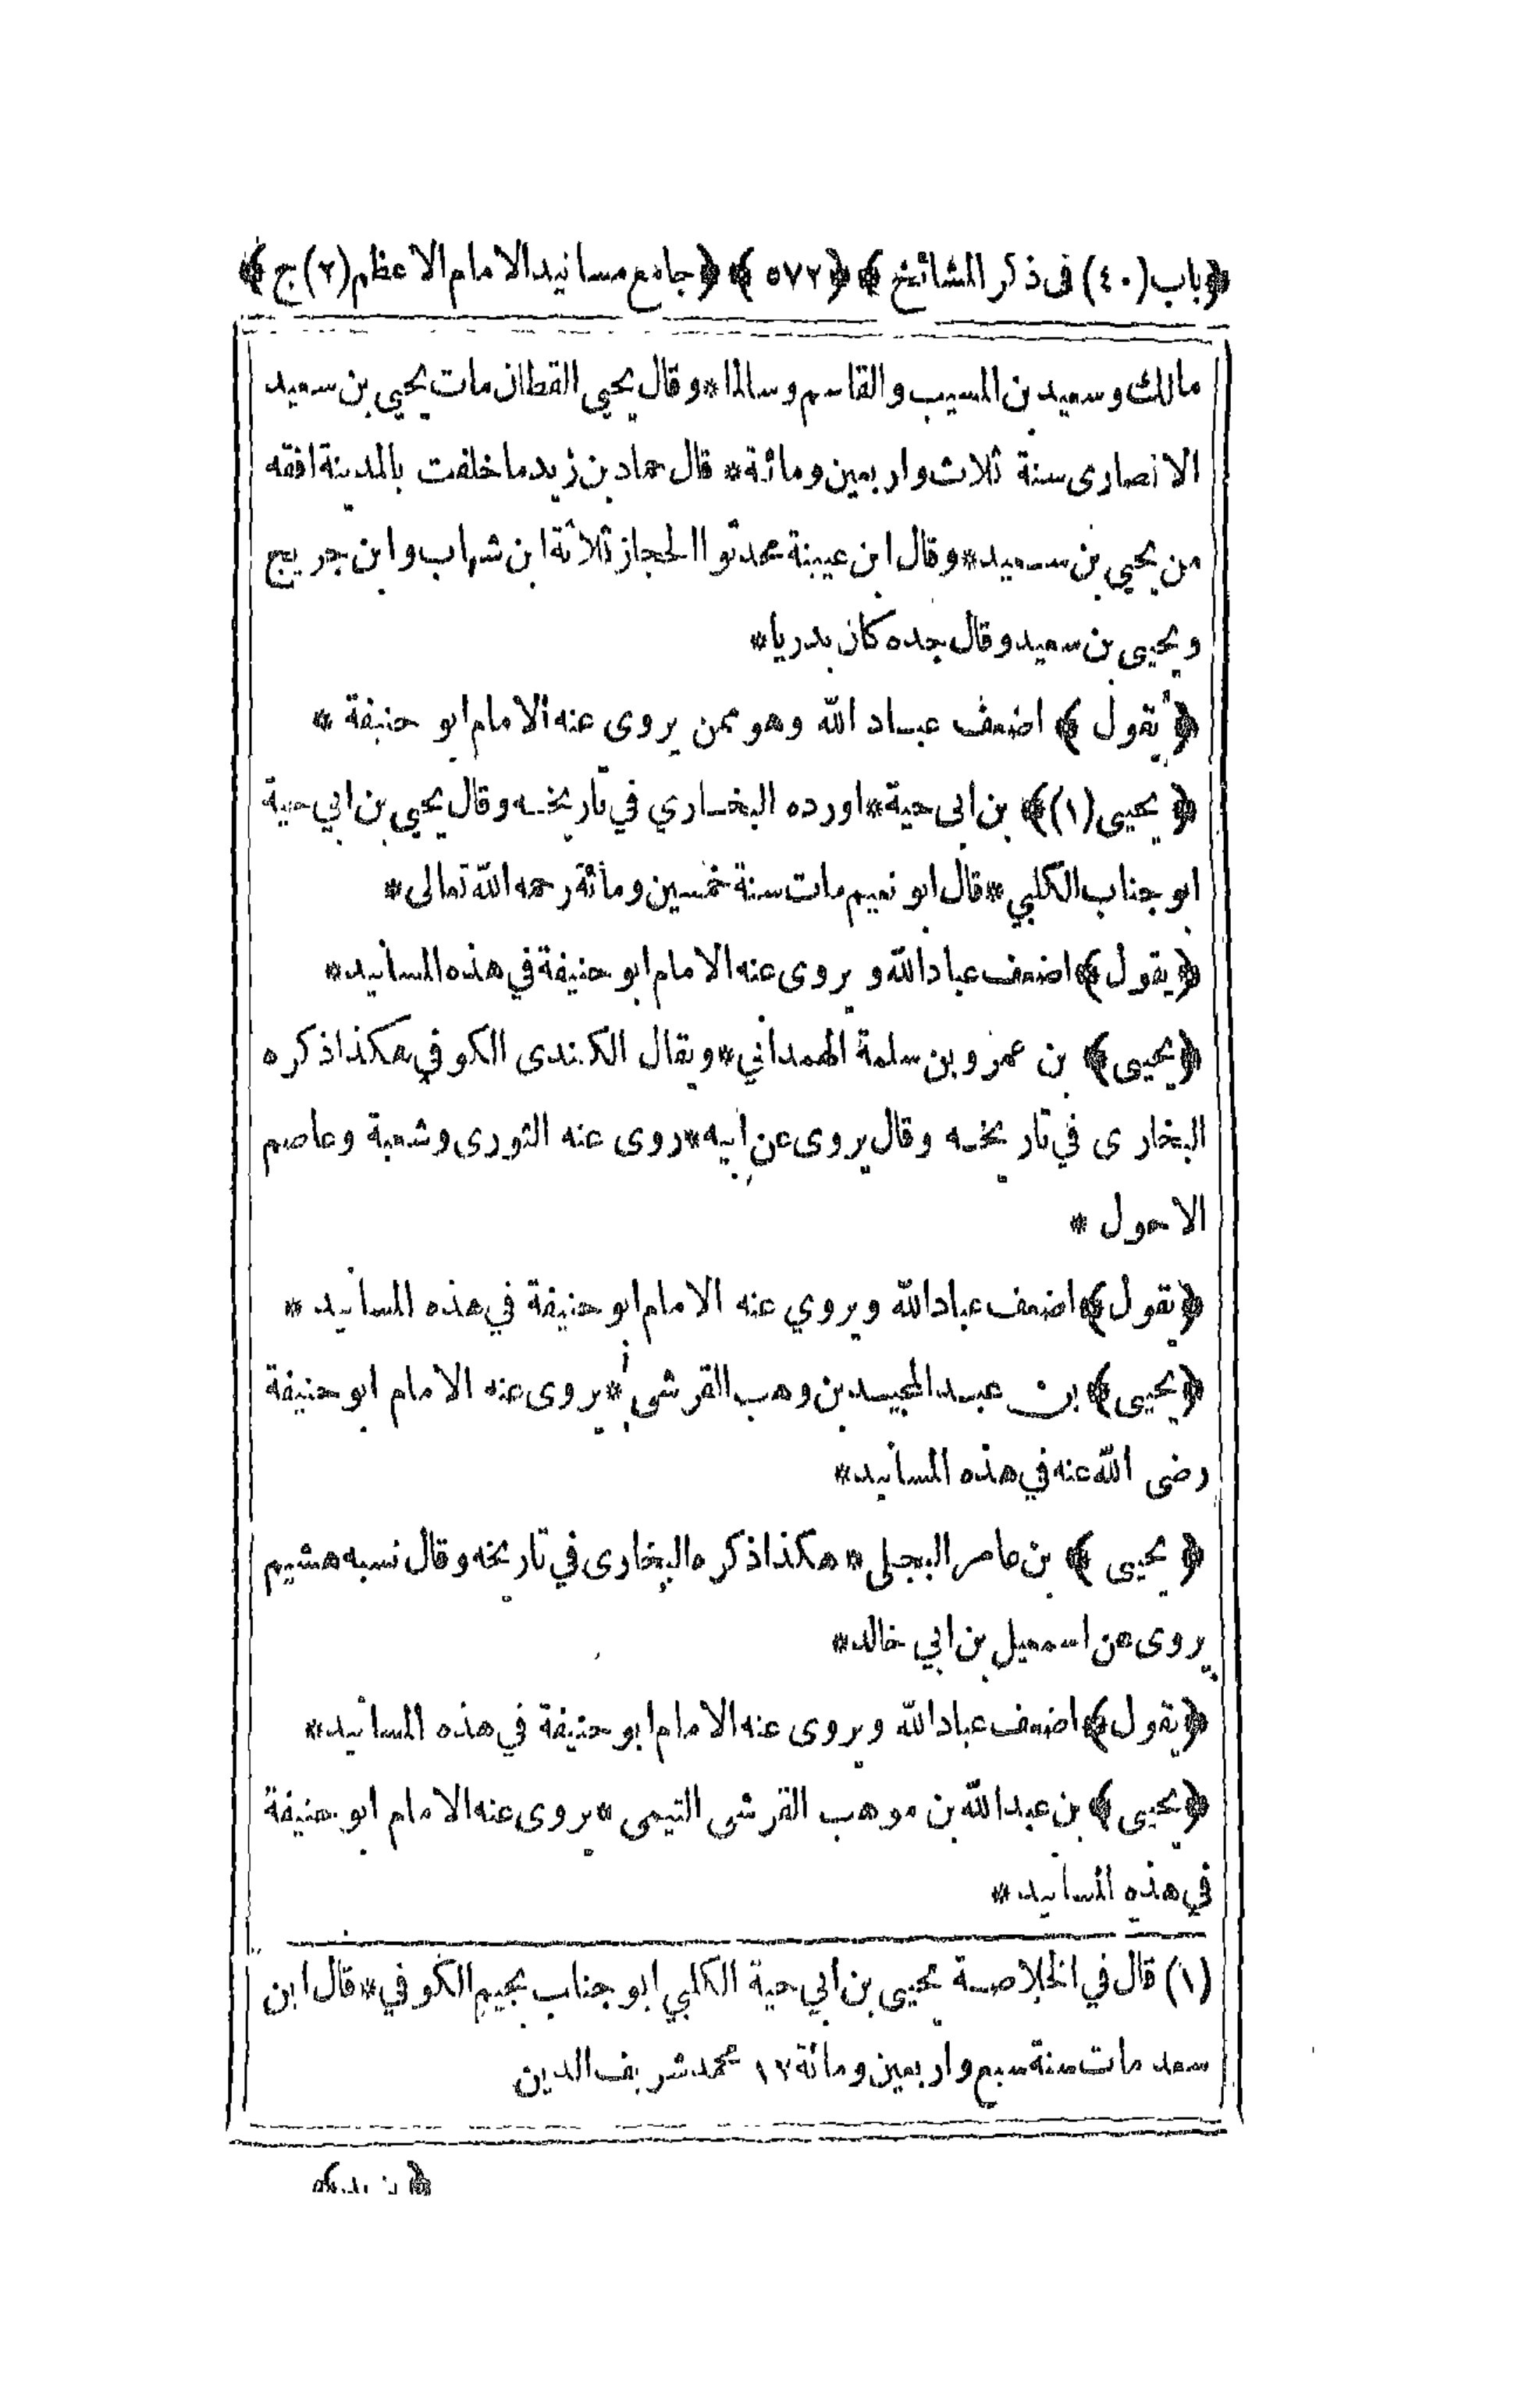 ﴿باب (٤٠) فى ذكر المشائخ﴾ ﴿٥٧٢﴾ ﴿جامع مسانيد الامام الاعظم (٢) ج﴾
مالك وسعيد بن المسيب والقاسم وسالما * وقال يحيى القطان مات يحيى بن سعيد
الانصارى سنة ثلاث واربعين ومائة * قال حماد بن زيد ما خلفت بالمدينة افقه
من يحيى بن سعيد * وقال ابن عيينة محدثوا الحجاز ثلاثة ابن شهاب وابن جريج
ويحيى بن سعيد وقال جده كان بدريا *
﴿يقول﴾ اضعف عباد الله وهو ممن يروى عنه الامام ابو حنيفة *
﴿يحيى (١)﴾ بن ابى حية * اورده البخاري في تاريخه وقال يحيى بن ابي حية
ابو جناب الكلبي * قال ابو نعيم مات سنة خمسين ومائة رحمه الله تعالى *
﴿يقول﴾ اضعف عباد الله ويروى عنه الامام ابو حنيفة في هذه المسانيد *
﴿يحيى﴾ بن عمرو بن سلمة الهمداني * ويقال الكندى الكوفي هكذا ذكره
البخارى في تاريخه وقال يروى عن ابيه * روى عنه الثورى وشعبة وعاصم
الاحول *
﴿يقول﴾ اضعف عباد الله ويروي عنه الامام ابو حنيفة في هذه المسانيد *
﴿يحيى﴾ بن عبد المجيد بن وهب القرشى * يروى عنه الامام ابو حنيفة
رضى الله عنه في هذه المسانيد *
﴿يحيى﴾ بن عامر البجلى * هكذا ذكره البخارى في تاريخه وقال نسبه هشيم
يروى عن اسمعيل بن ابي خالد *
﴿يقول﴾ اضعف عباد الله ويروى عنه الامام ابو حنيفة في هذه المسانيد *
﴿يحيى﴾ بن عبد الله بن موهب القرشى التيمى * يروى عنه الامام ابو حنيفة
في هذه المسانيد *
(١) قال في الخلاصة يحيى بن ابي حية الكلبي ابو جناب بجيم الكوفي * قال ابن
سعد مات سنة سبع واربعين ومائة ١٢ محمد شريف الدين